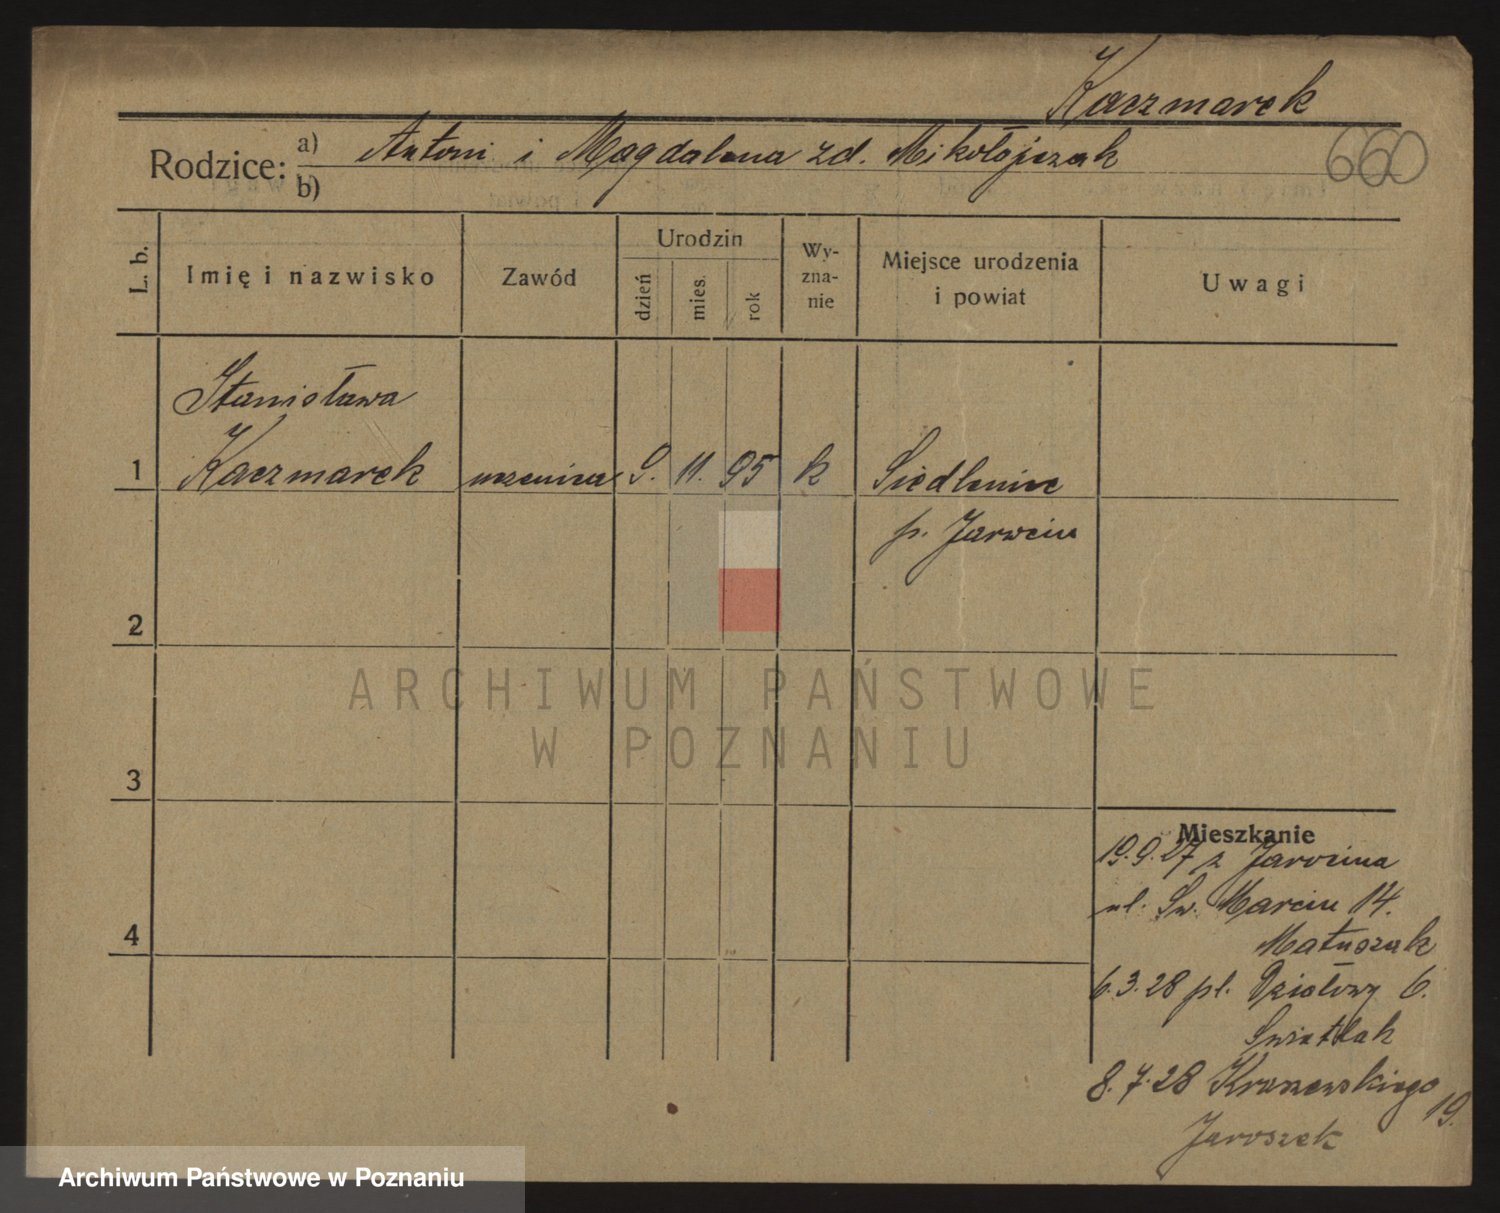 Kaczmarek
660
Rodzice:
a) Antoni i Magdalena zd. Mikołojczak
b)
L. b.
Imię i nazwisko
Zawód
Urodzin
dzień
mies.
rok
Wy-
zna-
nie
Miejsce urodzenia
i powiat
Uwagi
Stanisława
1 Kaczmarek uczenica 9. 11. 95 k Siedlemice
p. Jarocin
2
ARCHIWUM PAŃSTWOWE
W POZNANIU
3
Mieszkanie
19.9.27 z Jarocina
ul. Św. Marcin 14.
4
Matuszak
6.3.28 pl. Działowy 6.
Świetlak
8.7.28 Kraszewskiego
19.
Jaroszek
Archiwum Państwowe w Poznaniu